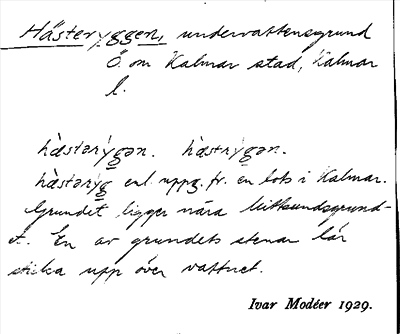 Hästeryggen, undervattensgrund
Ö. om Kalmar stad, Kalmar
l.
hästərýgən. hästrýgən.
hästərýg enl. uppg. fr. en lots i Kalmar.
Grundet ligger nära
et. En av grundets stenar lär
sticka upp över vattnet.
Ivar Modéer 1929.